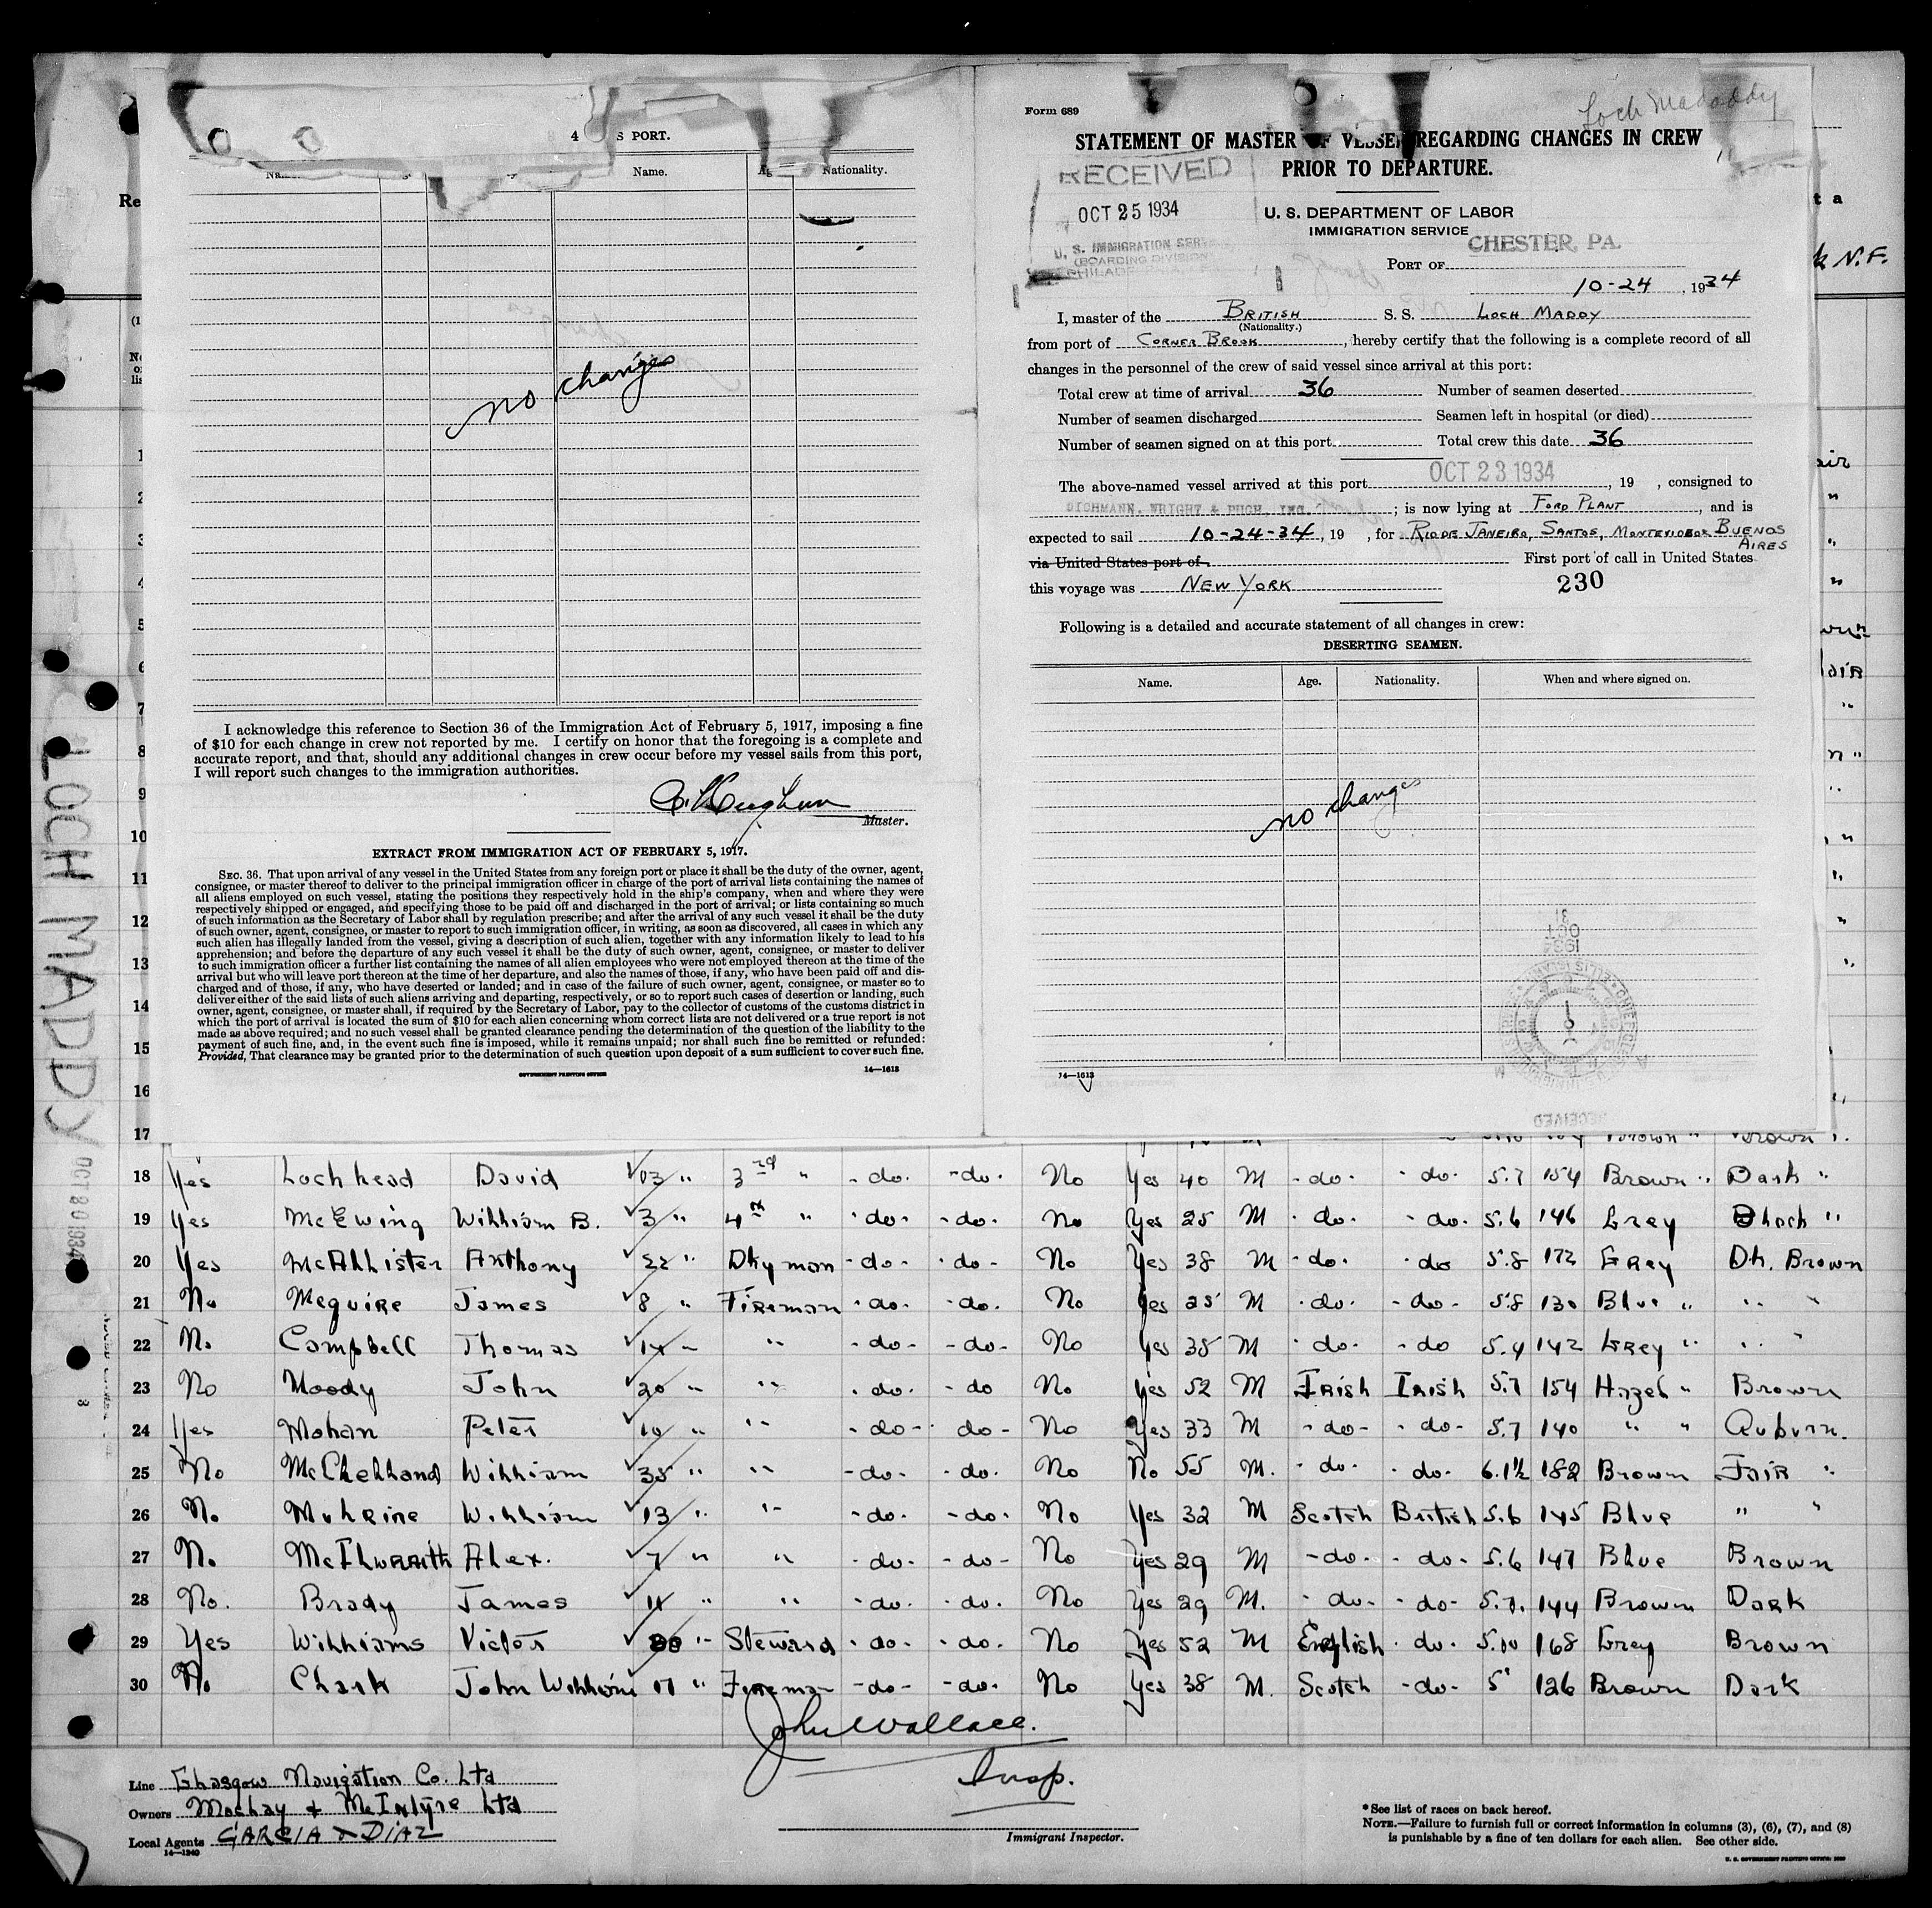 4 S PORT.
Name. Nationality.
no changes
I acknowledge this reference to Section 36 of the Immigration Act of February 5, 1917, imposing a fine
of $10 for each change in crew not reported by me. I certify on honor that the foregoing is a complete and
accurate report, and that, should any additional changes in crew occur before my vessel sails from this port,
I will report such changes to the immigration authorities.
Master.
EXTRACT FROM IMMIGRATION ACT OF FEBRUARY 5, 1917.
SEC. 36. That upon arrival of any vessel in the United States from any foreign port or place it shall be the duty of the owner, agent,
consignee, or master thereof to deliver to the principal immigration officer in charge of the port of arrival lists containing the names of
all aliens employed on such vessel, stating the positions they respectively hold in the ship's company, when and where they were
respectively shipped or engaged, and specifying those to be paid off and discharged in the port of arrival; or lists containing so much
of such information as the Secretary of Labor shall by regulation prescribe; and after the arrival of any such vessel it shall be the duty
of such owner, agent, consignee, or master to report to such immigration officer, in writing, as soon as discovered, all cases in which any
such alien has illegally landed from the vessel, giving a description of such alien, together with any information likely to lead to his
apprehension; and before the departure of any such vessel it shall be the duty of such owner, agent, consignee, or master to deliver
to such immigration officer a further list containing the names of all alien employees who were not employed thereon at the time of the
arrival but who will leave port thereon at the time of her departure, and also the names of those, if any, who have been paid off and dis-
charged and of those, if any, who have deserted or landed; and in case of the failure of such owner, agent, consignee, or master so to
deliver either of the said lists of such aliens arriving and departing, respectively, or so to report such cases of desertion or landing, such
owner, agent, consignee, or master shall, if required by the Secretary of Labor, pay to the collector of customs of the customs district in
which the port of arrival is located the sum of $10 for each alien concerning whom correct lists are not delivered or a true report is not
made as above required; and no such vessel shall be granted clearance pending the determination of the question of the liability to the
payment of such fine, and, in the event such fine is imposed, while it remains unpaid; nor shall such fine be remitted or refunded:
Provided, That clearance may be granted prior to the determination of such question upon deposit of a sum sufficient to cover such fine.
GOVERNMENT PRINTING OFFICE 14—1613
Form 689
Loch Madaddy
STATEMENT OF MASTER OF VESSEL REGARDING CHANGES IN CREW
PRIOR TO DEPARTURE.
RECEIVED
OCT 25 1934
U. S. IMMIGRATION SERV
(BOARDING DIVISION)
U. S. DEPARTMENT OF LABOR
IMMIGRATION SERVICE
PORT OF CHESTER, PA.
10-24, 1934
I, master of the BRITISH S. S. LOCH MADDY
(Nationality.)
from port of CORNER BROOK, hereby certify that the following is a complete record of all
changes in the personnel of the crew of said vessel since arrival at this port:
Total crew at time of arrival 36 Number of seamen deserted
Number of seamen discharged Seamen left in hospital (or died)
Number of seamen signed on at this port Total crew this date 36
The above-named vessel arrived at this port OCT 23 1934, 19 , consigned to
DICHMANN, WRIGHT & PUGH, INC. ; is now lying at FORD PLANT, and is
expected to sail 10-24-34, 19 , for RIO DE JANEIRO, SANTOS, MONTEVIDEO & BUENOS AIRES
via United States port of First port of call in United States
this voyage was NEW YORK 230
Following is a detailed and accurate statement of all changes in crew:
DESERTING SEAMEN.
Name. Age. Nationality. When and where signed on.
no changes
14—1613
LOCH MADDY
OCT 20 1934
k N.F.
1
2
3
4
5
6
7
8
9
10
11
12
13
14
15
16
17
18 Yes Lochhead David 03 " 3rd " - do. - do. No Yes 40 M - do. - do. 5.7 154 Brown " Dark "
19 Yes McEwing William B. 3 " 4th " - do. - do. No Yes 25 M - do. - do. 5.6 146 Grey Black "
20 Yes McAllister Anthony 22 " Dkyman - do - - do - No Yes 38 M - do. - do 5.8 172 Grey Dk. Brown
21 No Mcguire James 8 " Fireman - do. - do. No Yes 25 M - do. - do - 5.8 130 Blue " " "
22 No Campbell Thomas 14 " " - do - - do - No Yes 38 M - do. - do 5.4 142 Grey " " "
23 No Moody John 20 " " - do. - do No Yes 52 M Irish Irish 5.7 154 Hazel " Brown
24 Yes Mohan Peter 10 " " - do - do - No Yes 33 M - do - - do - 5.7 140 " " Auburn.
25 No McClelland William 35 " " - do. - do. No No 55 M. - do. - do. 6.1½ 182 Brown Fair "
26 No Mulrine William 13 " " - do. - do. No Yes 32 M Scotch British 5.6 145 Blue " "
27 No McIlwraith Alex. 7 " " - do. - do - No Yes 29 M - do. - do - 5.6 147 Blue Brown
28 No. Brady James 11 " " - do. - do. No Yes 29 M. - do - - do - 5.7. 144 Brown Dark
29 Yes Williams Victor 30 " Steward - do. - do. No Yes 52 M English - do. 5.10 168 Grey Brown
30 No Clark John William 17 " Fireman - do - - do. No Yes 38 M. Scotch - do - 5' 126 Brown Dark
John Wallace.
Insp.
Immigrant Inspector.
Line Glasgow Navigation Co. Ltd
Owners Maclay & McIntyre Ltd
Local Agents GARCIA & DIAZ
14—1240
*See list of races on back hereof.
NOTE.—Failure to furnish full or correct information in columns (3), (6), (7), and (8)
is punishable by a fine of ten dollars for each alien. See other side.
U. S. GOVERNMENT PRINTING OFFICE